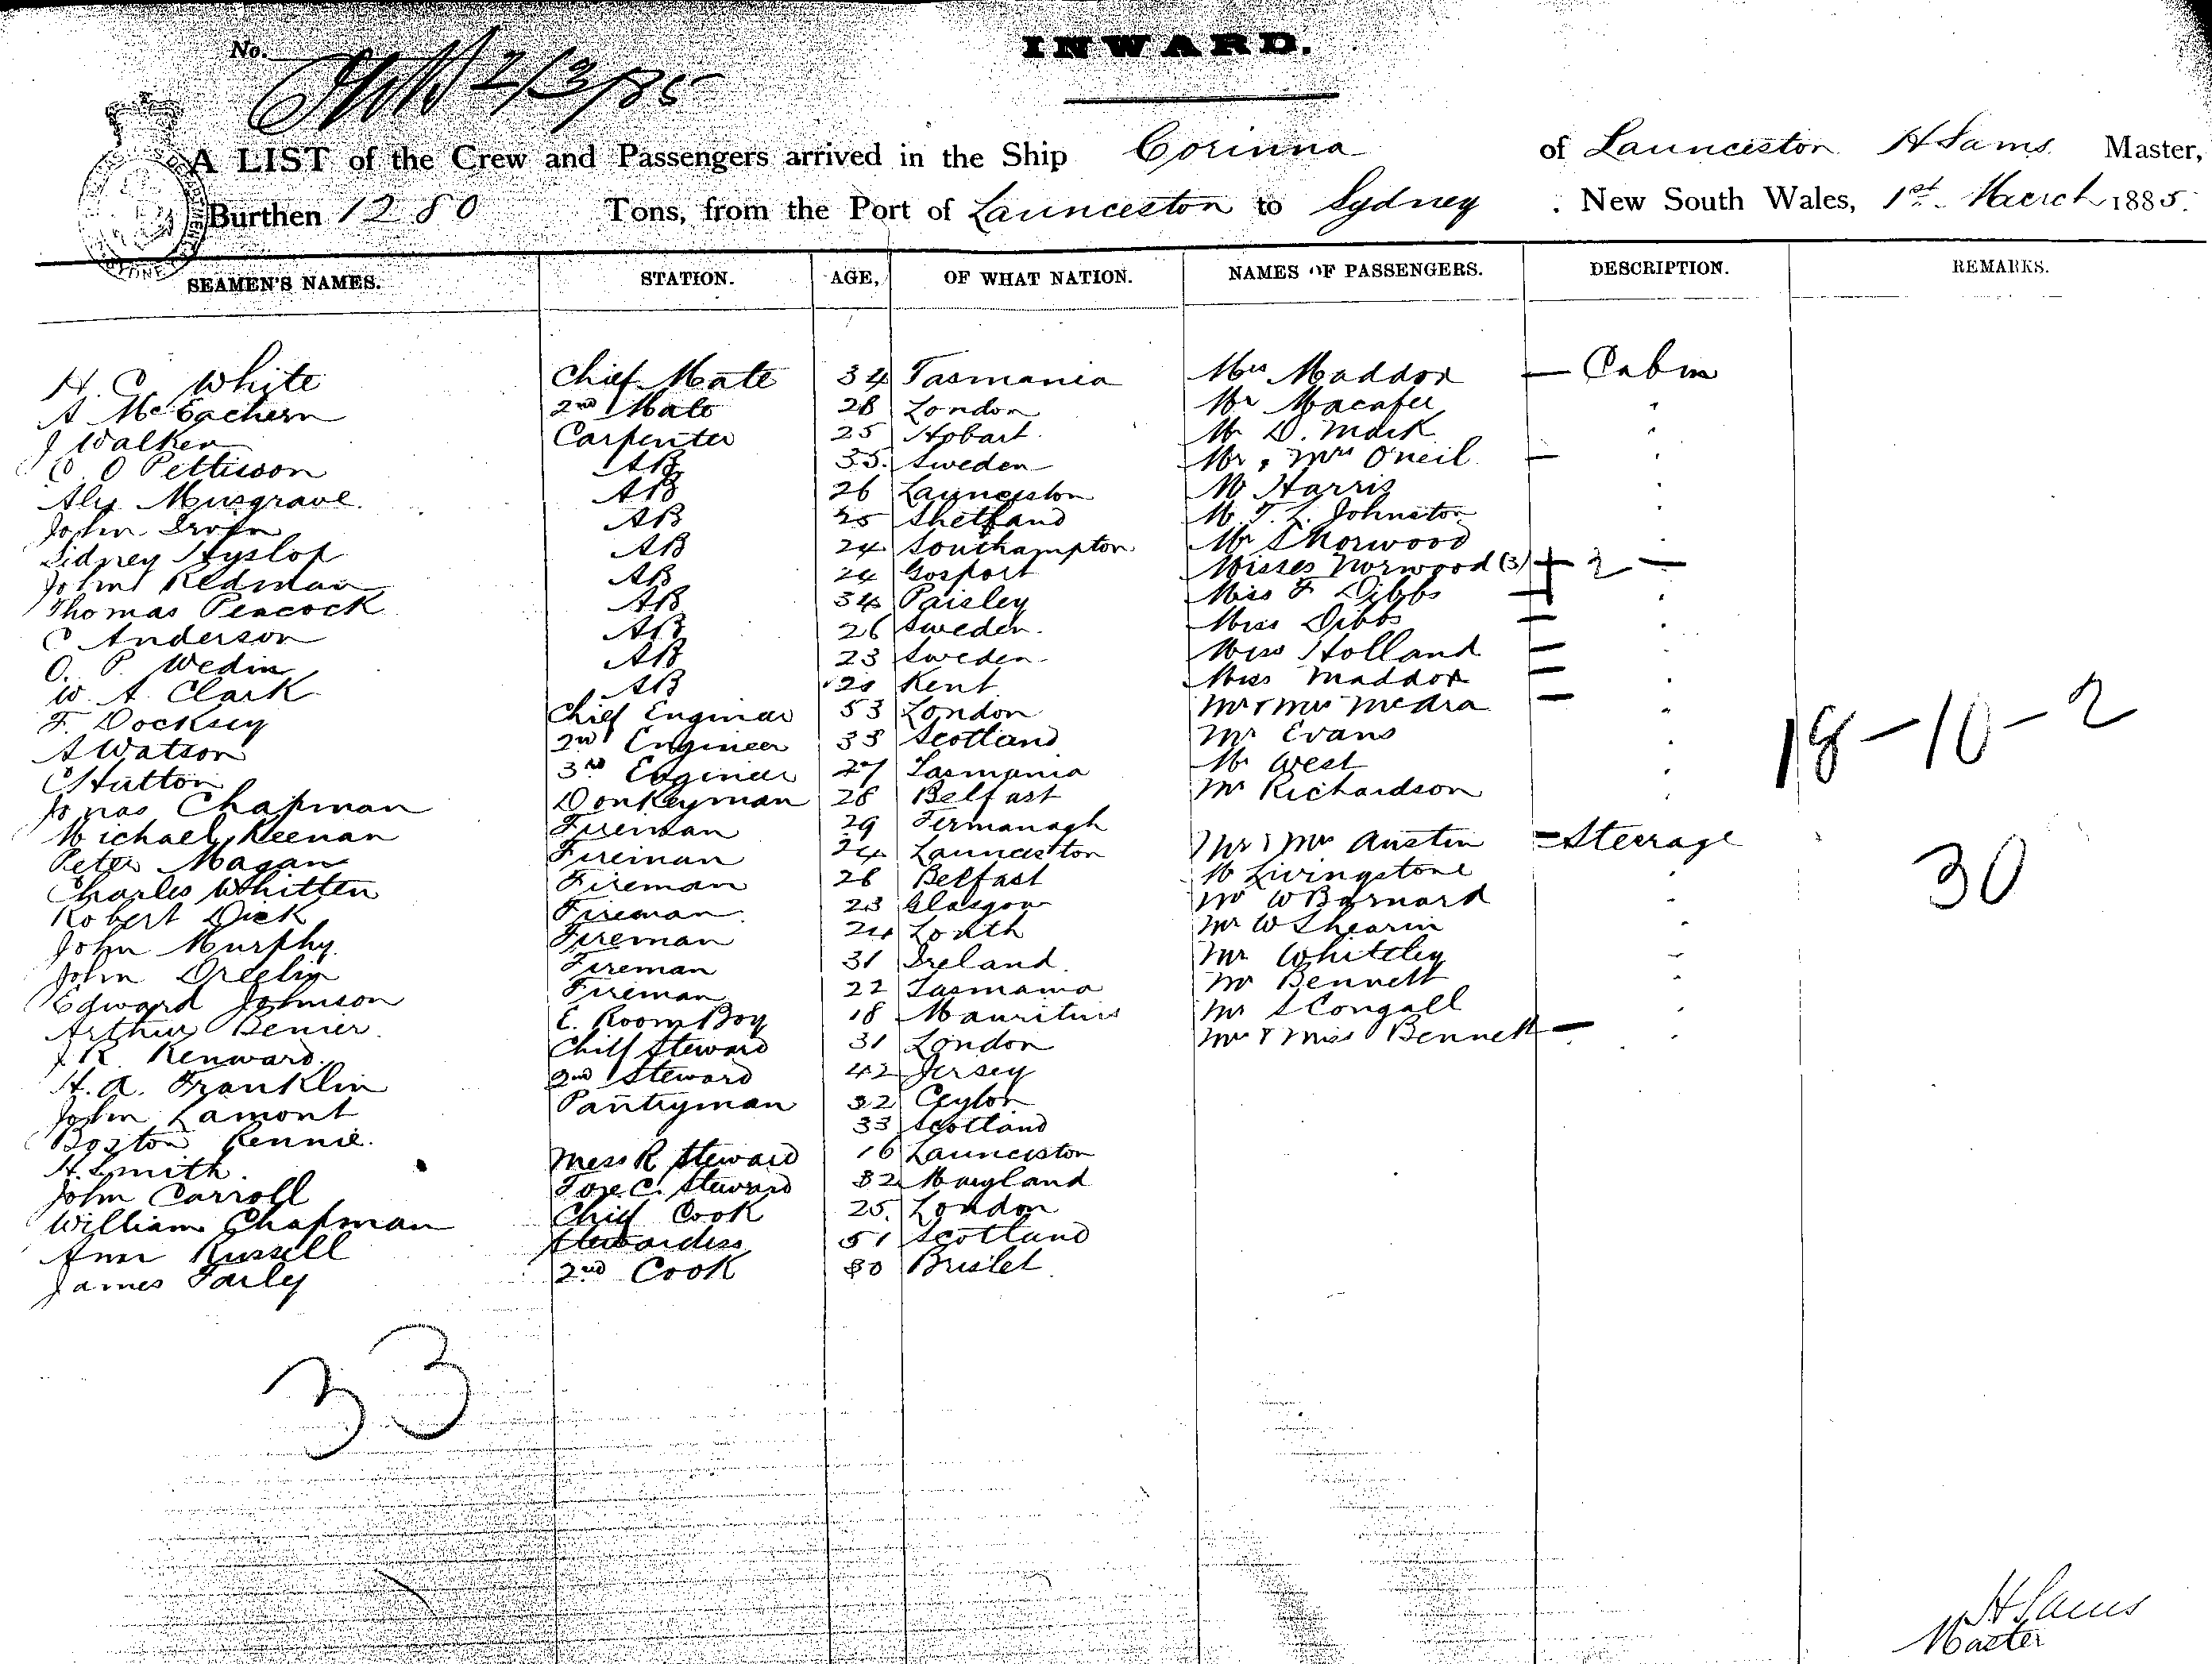 INWARD.
No. 2/3/85
A LIST of the Crew and Passengers arrived in the Ship Corinna of Launceston H Sams Master,
Burthen 1280 Tons, from the Port of Launceston to Sydney . New South Wales, 1st March 1885.
SEAMEN'S NAMES. STATION. AGE, OF WHAT NATION. NAMES OF PASSENGERS. DESCRIPTION. REMARKS.
H. C. White Chief Mate 34 Tasmania Mrs Maddox — Cabin
A McEachern 2nd Mate 28 London Mr Macafee "
J Walker Carpenter 25 Hobart Mr D. Mack "
C O Pettisson AB 35 Sweden Mr & Mrs O'neil — "
Alex Musgrave AB 26 Launceston Mr Harris "
John Irvin AB 25 Shetland Mr T. L. Johnston "
Sidney Hyslop AB 24 Southampton Mr S Norwood "
John Redman AB 24 Gosport Misses Norwood (3) + 2 —
Thomas Peacock AB 34 Paisley Miss F Dibbs "
C Anderson AB 26 Sweden Miss Dibbs — "
O. P. Wedin AB 23 Sweden Miss Holland — "
W. A. Clark AB Kent Miss Maddox — "
F. Docksey Chief Engineer 53 London Mr & Mrs Medra — "
A Watson 2nd Engineer 33 Scotland Mr Evans " 18-10-2
C Hutton 3rd Engineer 27 Tasmania Mr West "
Jonas Chapman Donkeyman 28 Belfast Mr Richardson "
Michael Keenan Fireman 29 Fermanagh
Peter Magan Fireman 24 Launceston Mr & Mrs Austin = Steerage
Charles Whitten Fireman 26 Belfast Mr Livingstone " 30
Robert Dick Fireman 23 Glasgow Mr W Barnard "
John Murphy Fireman 24 Louth Mr W Shearin "
John Fireman 31 Ireland Mr Whiteley "
Edward Johnson Fireman 22 Tasmania Mr Bennett "
Arthur Benier E. Room Boy 18 Mauritius Mr S Congall "
J. R. Renward Chief Steward 31 London Mr & Miss Bennett — "
H. A. Franklin 2nd Steward 42 Jersey
John Lamont Pantryman 32 Ceylon
Boston Rennie 33 Scotland
H. Smith Mess R Steward 16 Launceston
John Carroll Fore C. Steward 32 Maryland
William Chapman Chief Cook 25 London
Ann Russell Stewardess 51 Scotland
James Farley 2nd Cook 30
33
H Sams
Master